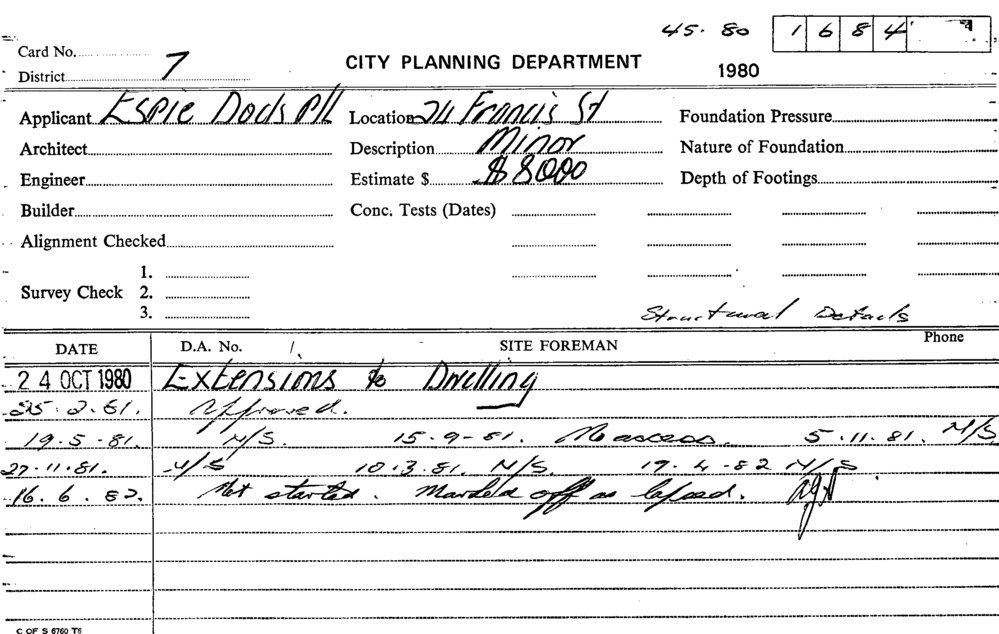 45. 80 1684
Card No.
District 7 CITY PLANNING DEPARTMENT 1980
Applicant Espie Dods P/L Location 24 Francis St Foundation Pressure
Architect Description Minor Nature of Foundation
Engineer Estimate $ $8000 Depth of Footings
Builder Conc. Tests (Dates)
Alignment Checked
1.
Survey Check 2.
3. Structural Details
DATE D.A. No. SITE FOREMAN Phone
24 OCT 1980 Extensions to Dwelling
25.2.81. Approved.
19.5-81. N/S. 15.9-81. No access. 5.11.81. N/S
27.11.81. N/S 10.3.81. N/S. 19.4-82 N/S
16.6.82. Not started. Marked off as lapsed.
C OF S 6760 T6